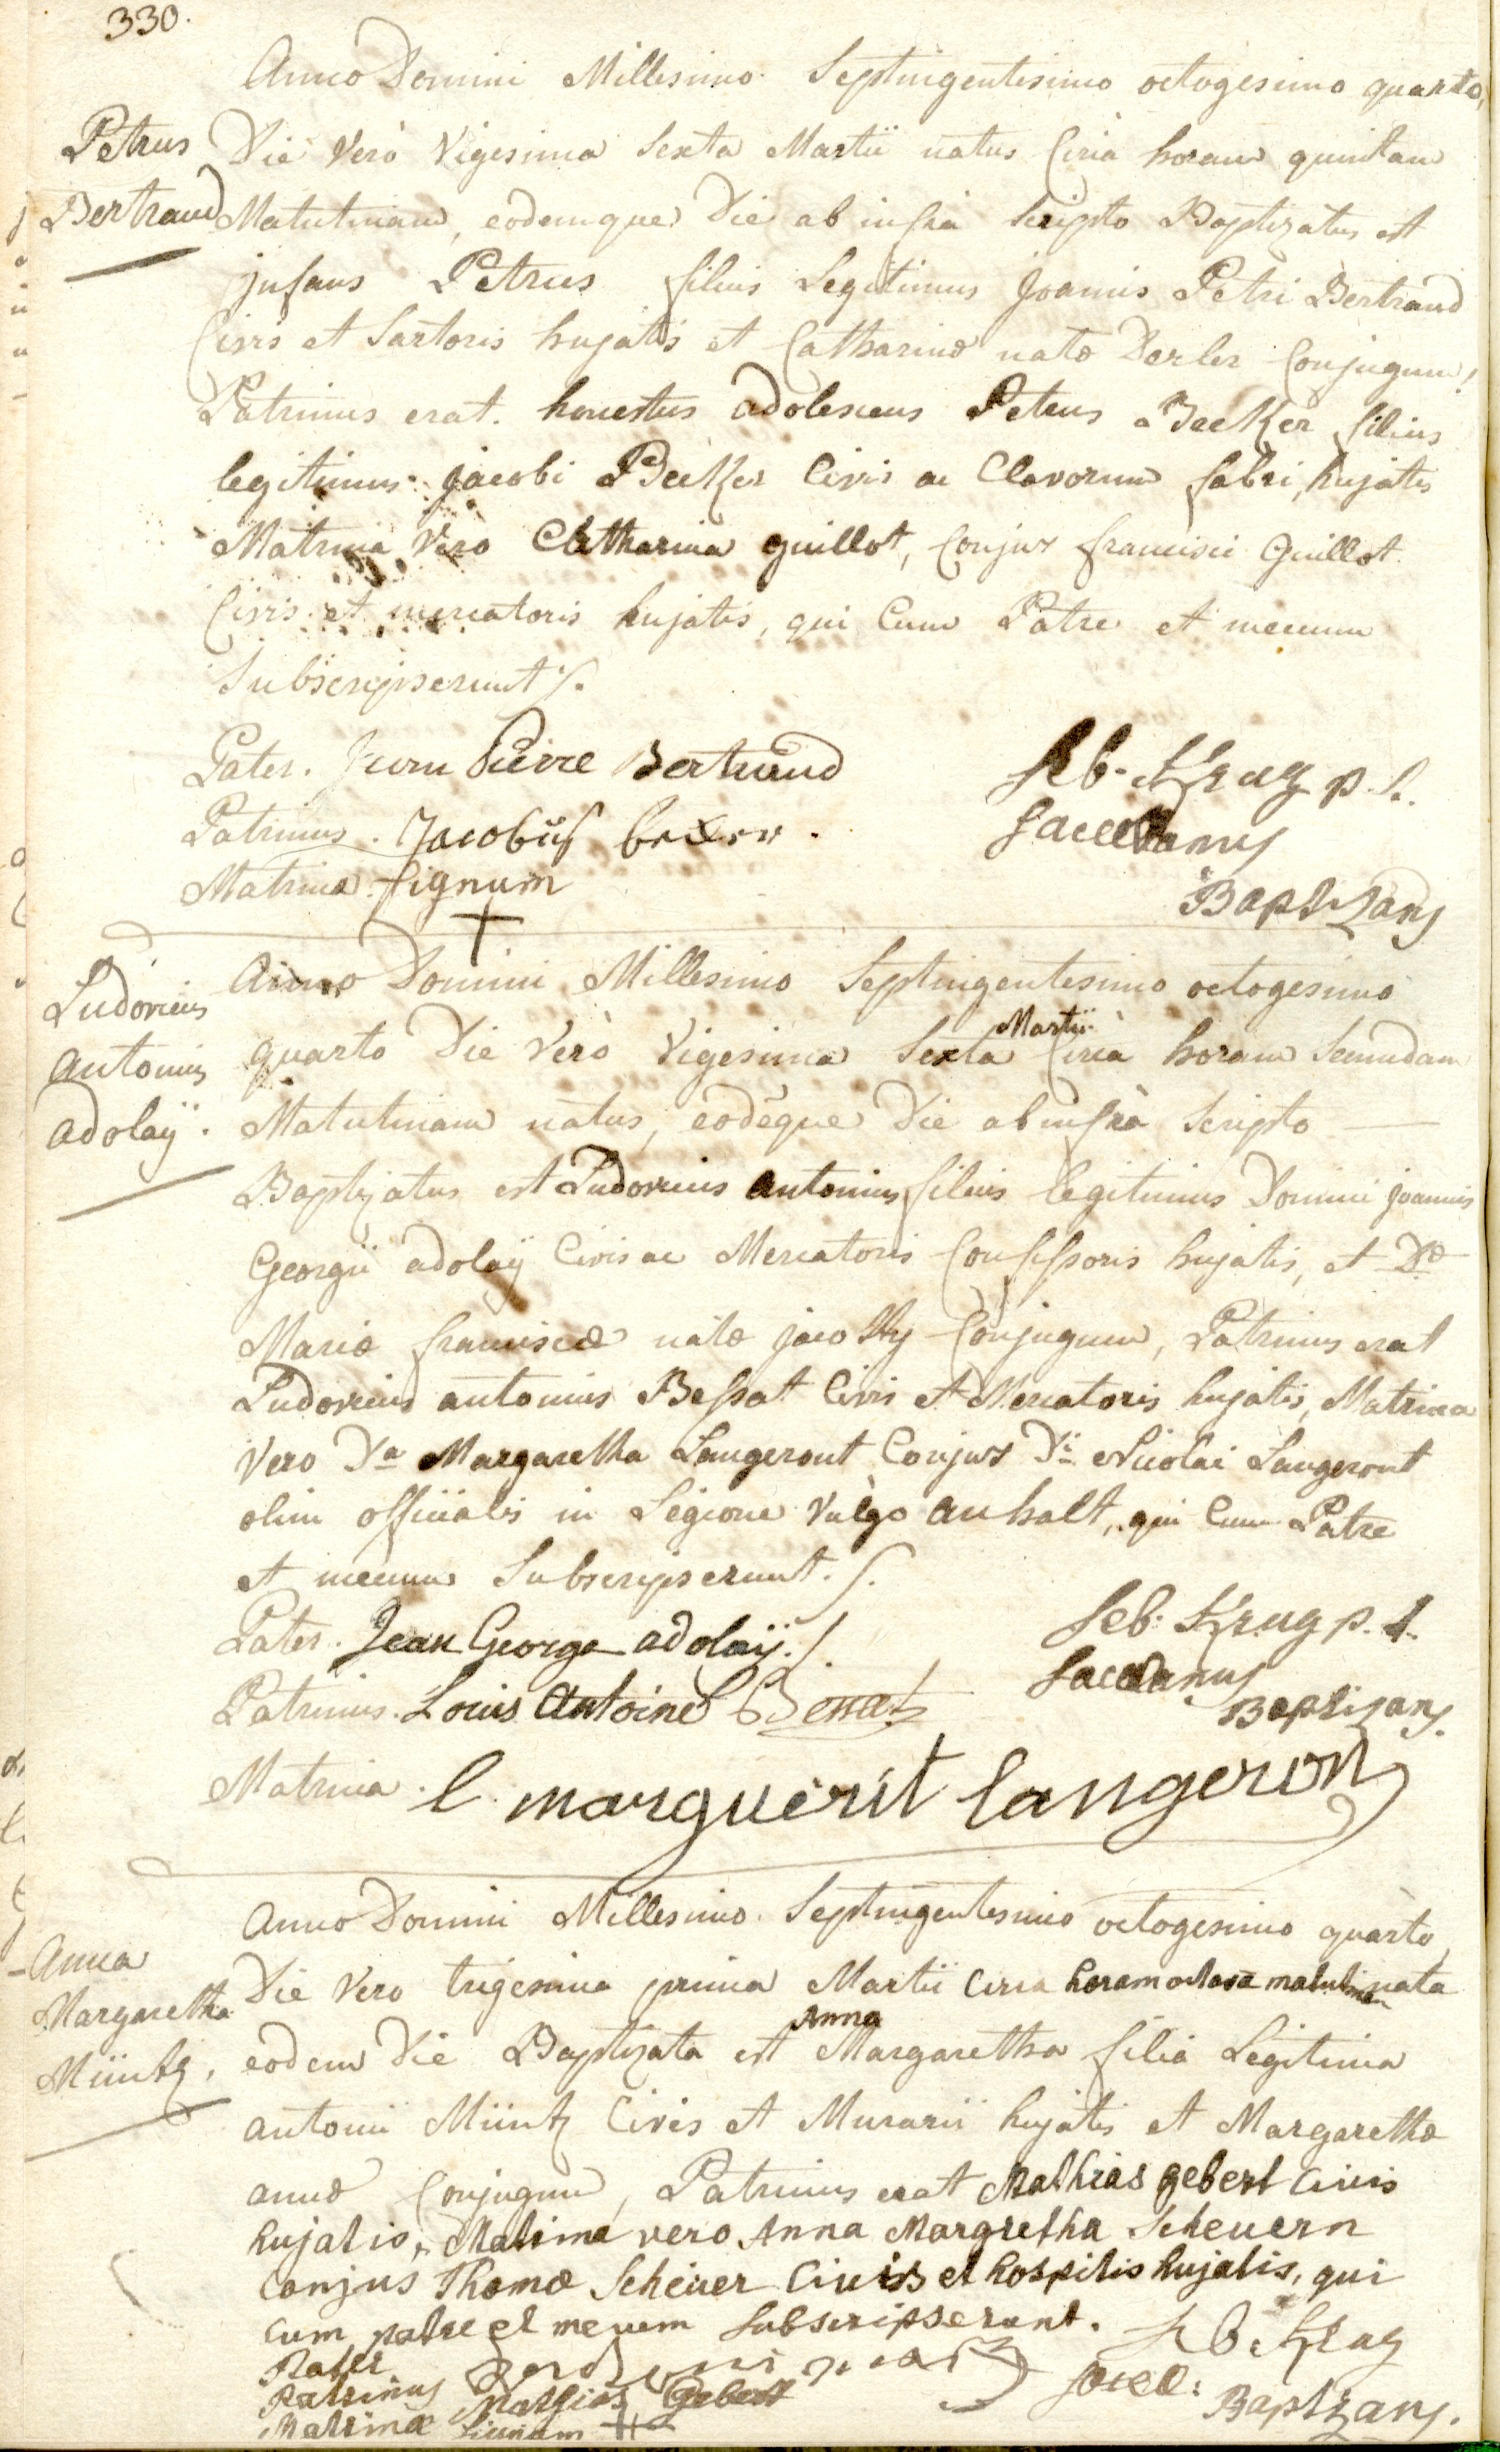 330.
Anno Domini Millesimo Septingentesimo octogesimo quarto,
Petrus
Bertrand
Die Verò Vigesima Sexta Martii natus Circà horam quintam
Matutinam, eodemque Die ab infrà Scripto Baptizatus est
jnfans Petrus filius Legitimus Joannis Petri Bertrand
Civis et Sartoris hujatis et Catharinæ natæ Derler Conjugum!
Patrinus erat. honestus adolescens Petrus Becker filius
legitimus jacobi Becker Civis ac Clavorum fabri hujatis
Matrina Vero Catharina guillot, Conjux francisci Guillot
Civis et mercatoris hujatis, qui Cum Patre et mecum
Subscripserunt ./.
Pater. Jean Pierre Bertrand
Patrinus. Jacobus
Matrina Signum
+
Seb. Krug p. t.
Sacellanus
Baptizans
Ludovicus
Antonius
Adolaÿ.
Anno Domini Millesimo Septingentesimo octogesimo
quarto Die Verò Vigesima Sexta Martii Circà horam Secundam
Matutinam natus, eodēque Die ab infrà Scripto —
Baptizatus est Ludovicus Antonius filius legitimus Domini Joannis
Georgii adolaÿ Civis ac Mercatoris Consessoris hujatis, et Dæ
Mariæ franciscæ natæ jacotty Conjugum, Patrinus erat
Ludovicus antonius Bessat Civis et Mercatoris hujatis, Matrina
Vero Da Margaretha Langeront Conjux Di Nicolai Langeront
olim officialis in Legione Vulgo anhalt, qui Cum Patre
et mecum Subscripserunt ./.
Pater. Jean George adolaÿ ./.
Patrinus. Louis Antoine
Matrina. C. marguerit langeron
Seb. Krug p. t.
Sacellanus
Baptizans.
Anna
Margaretha
Müntz.
Anno Domini Millesimo Septingentesimo octogesimo quarto
Die Vero trigesima prima Martii Circa horam octavā matutinam nata
eodem Die Baptizata est Anna Margaretha filia Legitima
antonii Müntz Civis et Murarii hujatis et Margarethæ
annæ Conjugum, Patrinus erat Mathias gebert Civis
hujatis, Matrina vero Anna Margretha Scheuern
Conjux Thomæ Scheuer Civis et hospitis hujatis, qui
Cum patre et mecum Subscripserunt.
Pater
Patrinus Mathias Gebert
Matrinæ Signum ++
Seb. Krug
Sacel:
Baptizans.